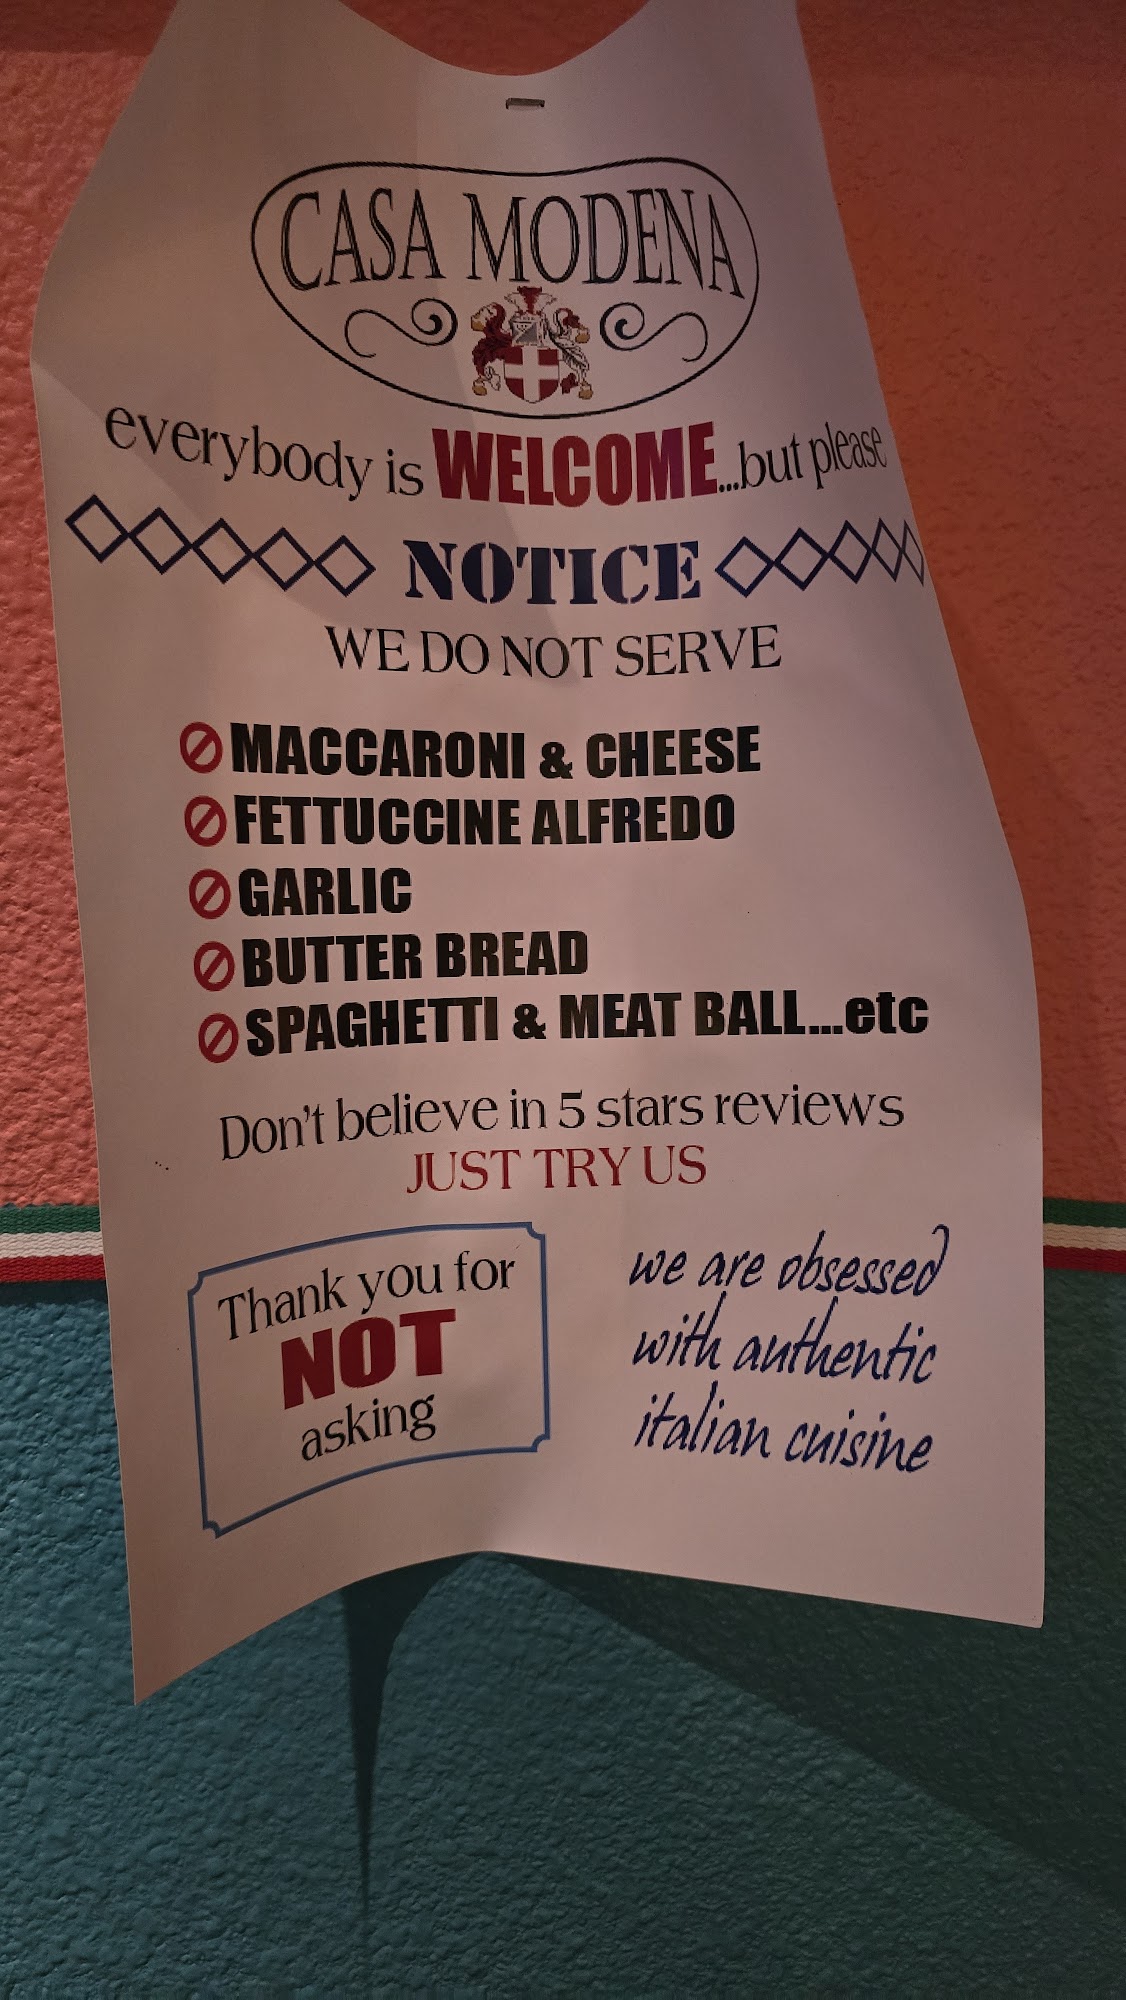 CASA MODENA
everybody is WELCOME...but please
NOTICE
WE DO NOT SERVE
MACCARONI & CHEESE
FETTUCCINE ALFREDO
GARLIC
BUTTER BREAD
SPAGHETTI & MEAT BALL...etc
Don't believe in 5 stars reviews
JUST TRY US
Thank you for
NOT
asking
we are obsessed
with authentic
italian cuisine